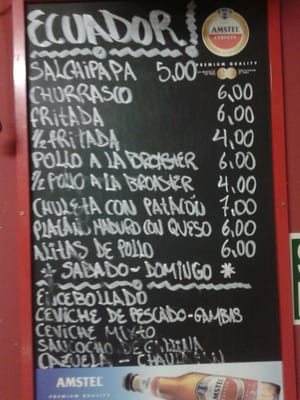 ECUADOR!
AMSTEL
PREMIUM QUALITY
SALCHIPAPA 5,00
CHURRASCO 6,00
FRITADA 6,00
½ FRITADA 4,00
POLLO A LA BROASTER 6,00
½ POLLO A LA BROASTER 4,00
CHULETA CON PATACÓN 7,00
PLATANO MADURO CON QUESO 6,00
ALITAS DE POLLO 6,00
* SABADO - DOMINGO *
ENCEBOLLADO
CEVICHE DE PESCADO - GAMBAS
CEVICHE MIXTO
SANCOCHO DE GALLINA
CAZUELA -
AMSTEL
PREMIUM QUALITY
AMSTEL